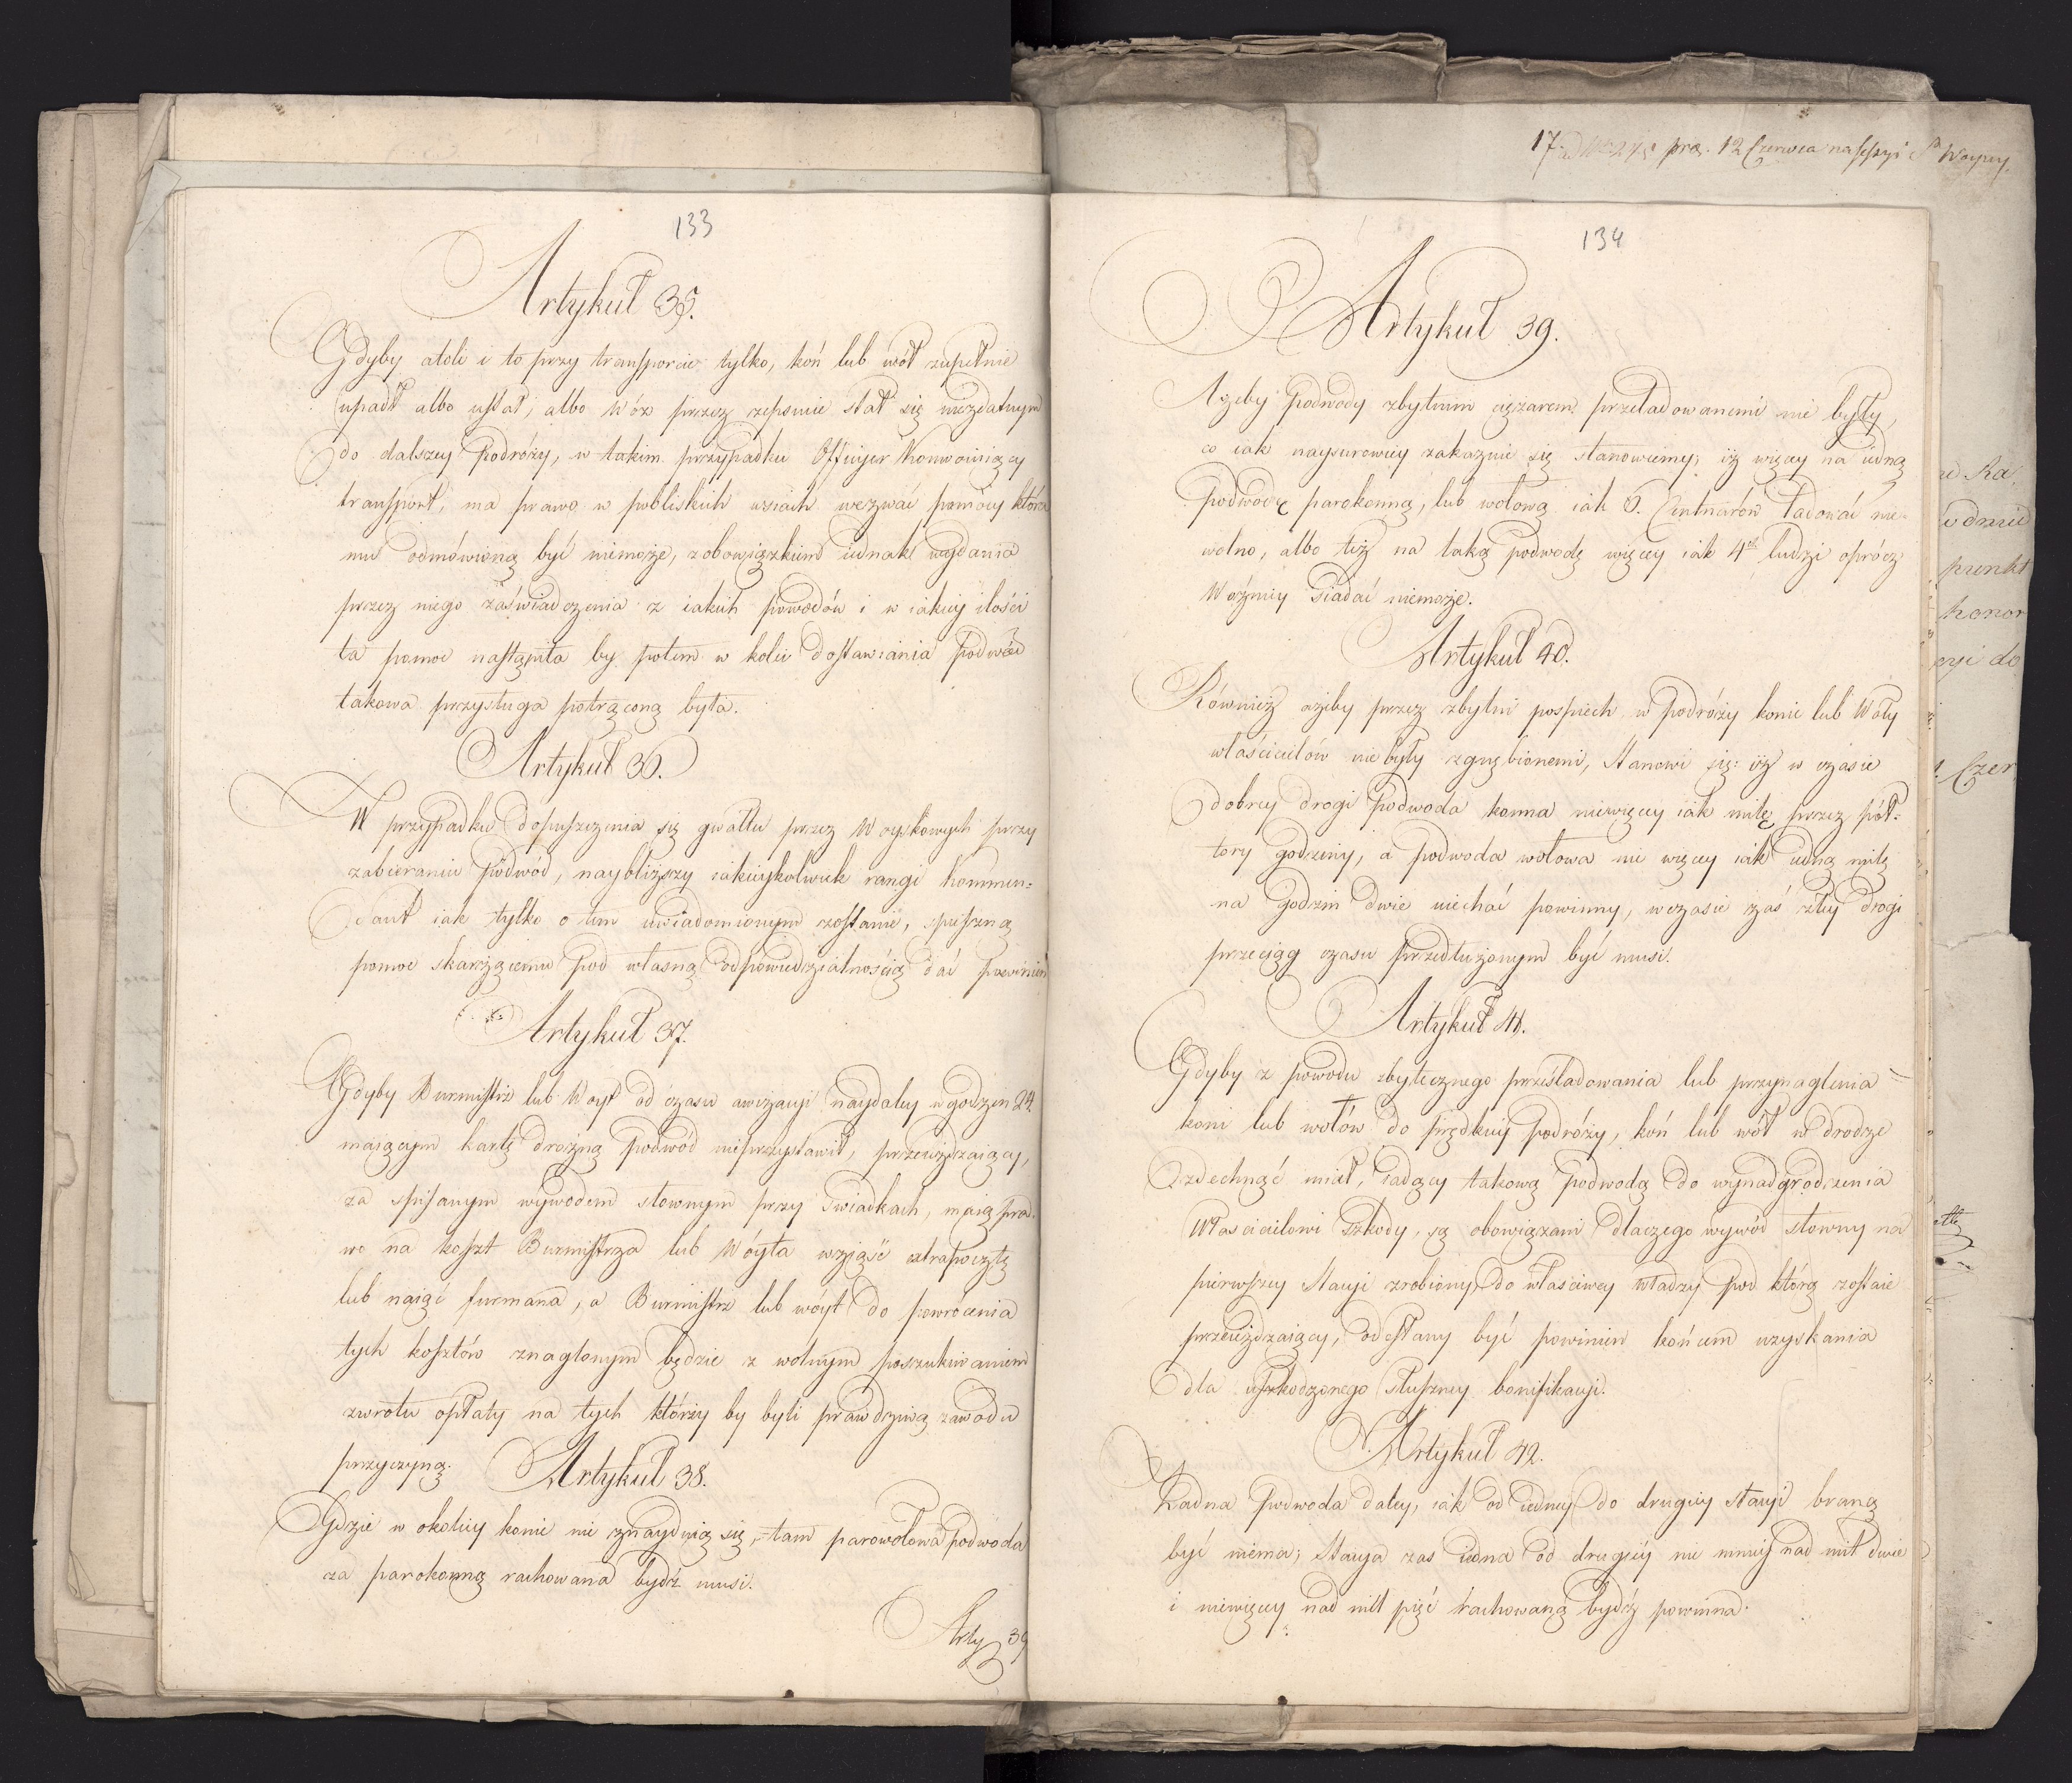 133
Artykuł 35.
Gdyby atoli i to przy transporcie tylko, koń lub wół zupełnie
upadł albo ustał, albo wóz przez zepsucie stał się niezdatnym
do dalszey Podróży, w takim przypadku Officyer Konwoiuiący
transport, ma prawo w pobliskich wsiach wezwać pomocy która
mu odmówioną być niemoże, z obowiązkiem iednak wydania
przez niego zaświadczenia z iakich powodów i w iakiey ilości
ta pomoc nastąpiła by potem w kolei dostawiania Podwód
takowa przysługa potrąconą była.
Artykuł 36.
W przypadku dopuszczenia się gwałtu przez Woyskowych przy
zabieraniu Podwód, naybliższy iakieykolwiek rangi Kommen-
dant iak tylko o tem uwiadomionym zostanie, spieszną
pomoc skarżącemu pod własną odpowiedzialnością dać powinien
Artykuł 37.
Gdyby Burmistrz lub Woyt od czasu awizacyi naydaley w godzin 24.
maiącym kartę drożną Podwod nieprzystawił, przeieżdżaiący,
za spisanym wywodem słownym przy Swiadkach, maią pra-
wo na koszt Burmistrza lub Wóyta wziąść extrapocztę
lub naiąć furmana, a Burmistrz lub wóyt do powrócenia
tych kosztów znaglonym będzie z wolnym poszukiwaniem
zwrotu opłaty na tych którzy by byli prawdziwą zawodu
przyczyną.
Artykuł 38.
Gdzie w okolicy konie nie znayduią się, tam parowołowa podwoda
za parokonną rachowana bydź musi.
Arty 39
17. ad Nr 245 prez. 12 Czerwca na sessyi
134
Artykuł 39.
Ażeby Podwody zbytnim ciężarem przeładowanemi nie były,
co iak naysurowiey zakazuie się stanowiemy; iż więcey na iedną
Podwodę parokonną, lub wołową iak 6. Centnarów ładować nie-
wolno, albo też na taką podwodę więcey iak 4ch ludzi oprócz
Woźnicy siadać niemoże.
Artykuł 40.
Również ażeby przez zbytni pospiech w podróży konie lub Woły
właścicielów nie były zgnębionemi, Stanowi się: iż w czasie
dobrey drogi Podwoda konna niewięcey iak milę przez pół-
tory godziny, a podwoda wołowa nie więcey iak iedną milę
na godzin dwie iechać powinny, w czasie zaś złey drogi
przeciąg czasu przedłużonym być musi.
Artykuł 41.
Gdyby z powodu zbytecznego prześladowania lub przynaglenia
koni lub wołów do prędkiey podróży, koń lub wół w drodze
zdechnąć miał, iadący takową podwodą do wynadgrodzenia
Właścicielowi Szkody, są obowiązani dlaczego wywód słowny na
pierwszey Stacyi zrobiony do właściwey władzy pod którą zostaie
przeieżdżaiący, odesłany być powinien końcem uzyskania
dla uszkodzonego słuszney bonifikacyi.
Artykuł 42.
Żadna Podwoda daley, iak od iedney do drugiey stacyi braną
być niema; Stacya zas iedna od drugiey nie mniey nad mil dwie
i niewięcey nad mil pięć rachowaną bydź powinna.
punkt
honor
do
Czer